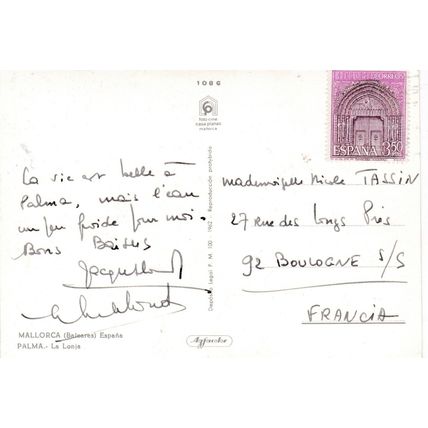 1086
foto-cine
casa planas
mallorca
CORREOS
ESPAÑA
La vie est belle à
Palma, mais l'eau
un peu froide pour moi.
Bons Baisers
Mademoiselle Nicole TASSIN
27 Rue des Longs Prés
92 BOULOGNE s/s
FRANCIA
Deposito Legal P. M. 100 - 1962 - Reproducción prohibida
MALLORCA (Baleares) España
PALMA.- La Lonja